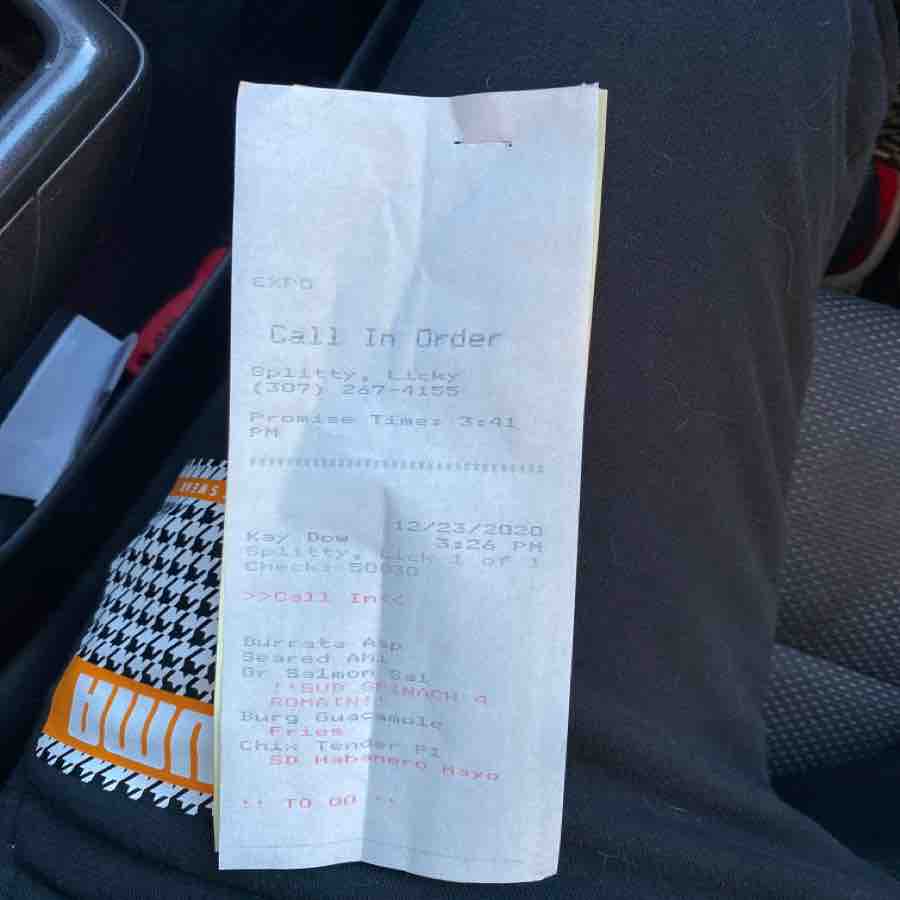 EXPO
Call In Order
Splitty, Licky
(307) 267-4155
Promise Time: 3:41
PM
12/23/2020
Kay Dow 3:26 PM
Splitty, Lick 1 of 1
Check: 50030
>>Call In<<
Burrata App
Seared AHi
Gr Salmon Sal
!!SUB SPINACH 4
ROMAIN!!
Burg Guacamole
Fries
Chix Tender Pl
SD Habanero Mayo
!! TO GO !!
PUMA